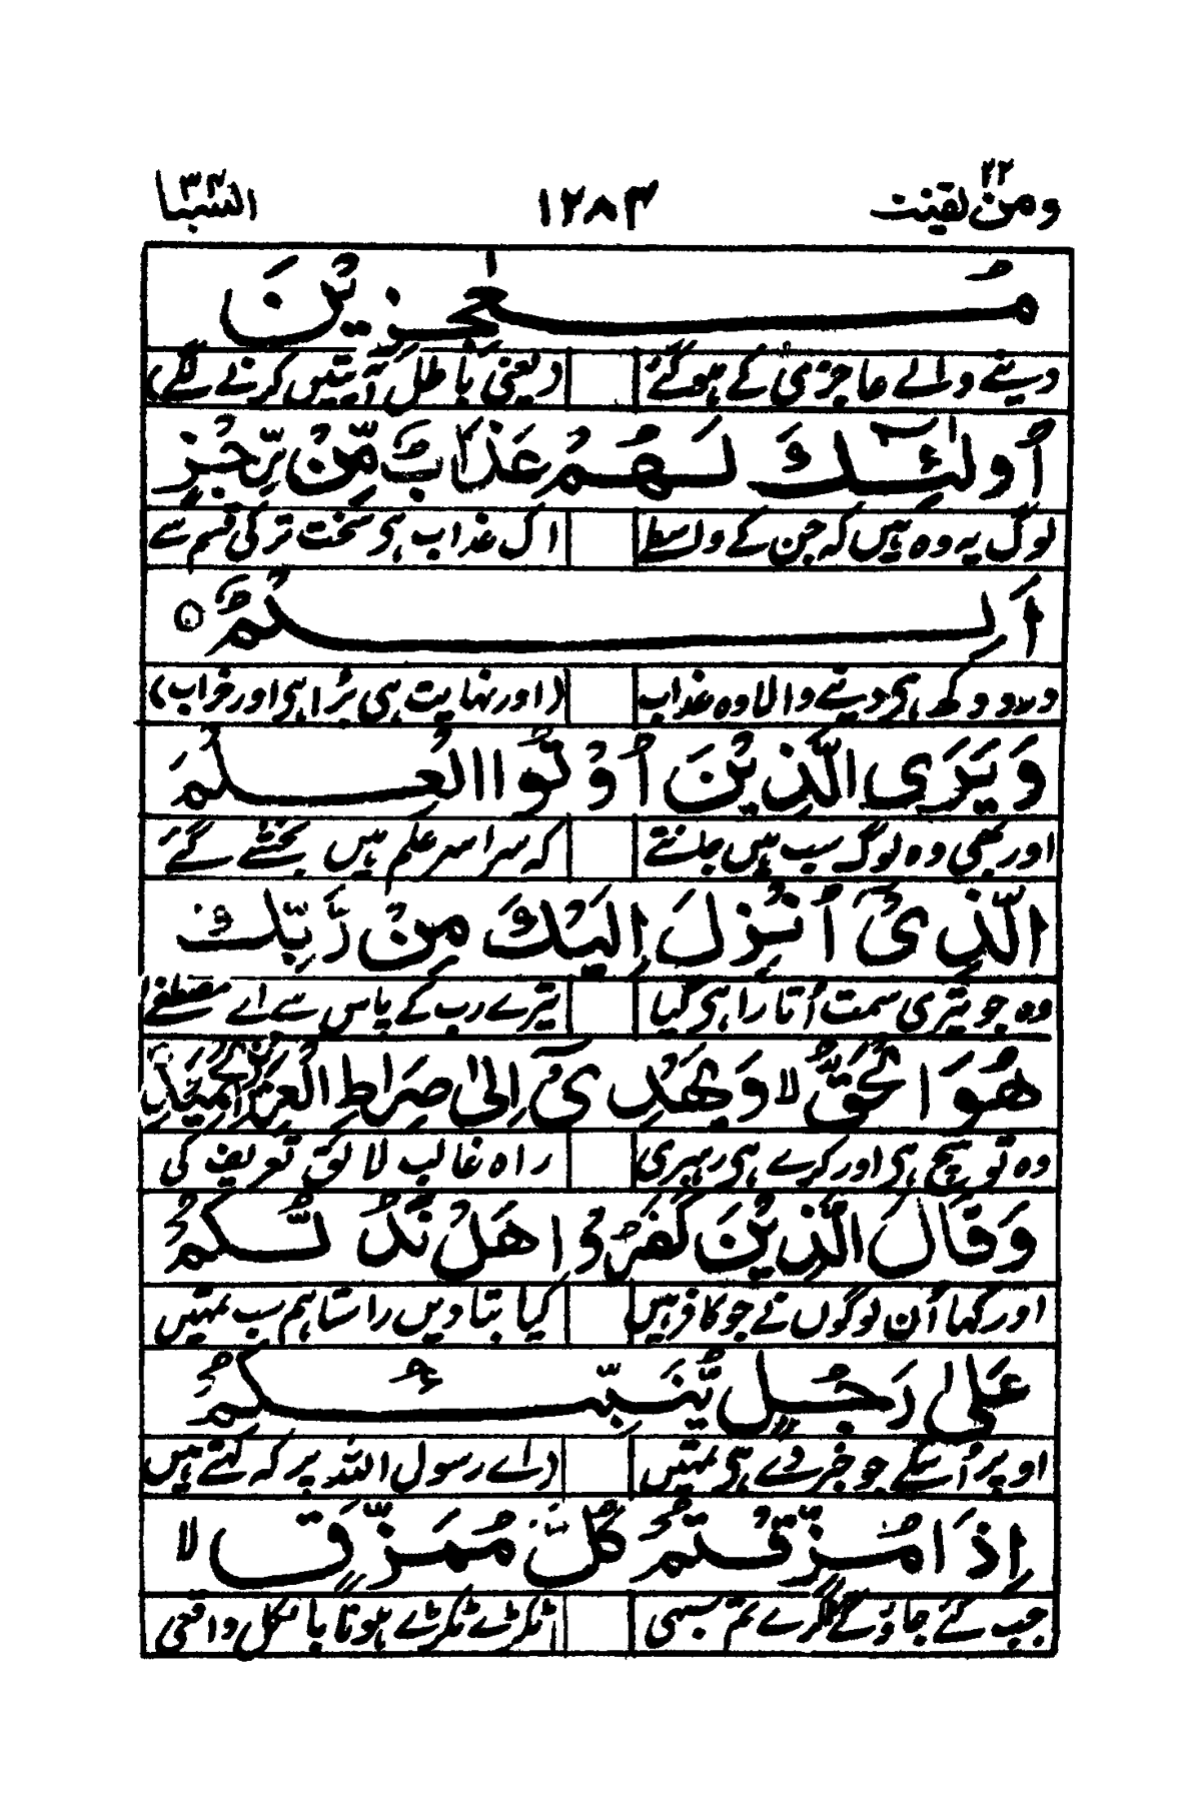 ومن یقنت ۲۲ ۱۲۸۴ السبا ۳۴
مُعٰجِزِیْنَ
دینے والے عاجزی کے ہو گئے (یعنی باطل آیتیں کرنے لگے)
اُولٰٓئِكَ لَهُمْ عَذَابٌ مِّنْ رِّجْزٍ
لوگ یہ وہ ہیں کہ جن کے واسطے اک عذاب ہی سخت تر کی قسم سے
اَلِیْمٌ ۝
درد و دکھ ہی دینے والا وہ عذاب (اور نہایت ہی بُرا ہی اور خراب)
وَیَرَی الَّذِیْنَ اُوْتُوا الْعِلْمَ
اور بھی وہ لوگ سب ہیں جانتے کہ سراسر علم ہیں بخشے گئے
الَّذِیْۤ اُنْزِلَ اِلَیْكَ مِنْ رَّبِّكَ
وہ جو تیری سمت اُتارا ہی گیا تیرے رب کے پاس سے اے مصطفےٰ
هُوَ الْحَقَّ ۙ وَیَهْدِیْۤ اِلٰی صِرَاطِ الْعَزِیْزِ الْحَمِیْدِ
وہ تو سچ ہی اور کرے ہی رہبری راہ غالب لائق تعریف کی
وَقَالَ الَّذِیْنَ كَفَرُوْا هَلْ نَدُلُّكُمْ
اور کہا اُن لوگوں نے جو کافر ہیں کیا بتا دیں راستا ہم سب تمہیں
عَلٰی رَجُلٍ یُّنَبِّئُكُمْ
اوپر اُسکے جو خبر دے ہی تمہیں (اے رسول اللہ پر کہ کہتے ہیں
اِذَا مُزِّقْتُمْ كُلَّ مُمَزَّقٍ ۙ
جب کئے جاؤگے ٹکڑے تم سبھی ٹکڑے ٹکڑے ہونا بالکل واقعی